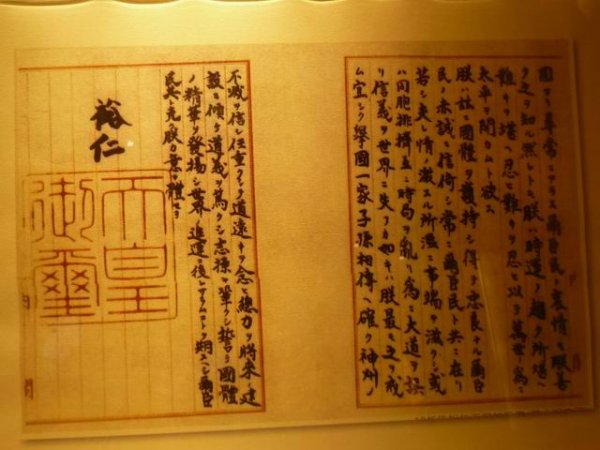 固ヨリ尋常ニアラス爾臣民ノ衷情モ朕善
ク之ヲ知ル然レトモ朕ハ時運ノ趨ク所堪ヘ
難キヲ堪ヘ忍ヒ難キヲ忍ヒ以テ萬世ノ爲ニ
太平ヲ開カムト欲ス
朕ハ茲ニ國體ヲ護持シ得テ忠良ナル爾臣
民ノ赤誠ニ信倚シ常ニ爾臣民ト共ニ在リ
若シ夫レ情ノ激スル所濫ニ事端ヲ滋クシ或
ハ同胞排擠互ニ時局ヲ亂リ爲ニ大道ヲ誤
リ信義ヲ世界ニ失フカ如キハ朕最モ之ヲ戒
ム宜シク擧國一家子孫相傳ヘ確ク神州ノ
不滅ヲ信シ任重クシテ道遠キヲ念ヒ總力ヲ將來ノ建
設ニ傾ケ道義ヲ篤クシ志操ヲ鞏クシ誓テ國體
ノ精華ヲ發揚シ世界ノ進運ニ後レサラムコトヲ期スヘシ爾臣
民其レ克ク朕カ意ヲ體セヨ
裕仁
天皇
御璽